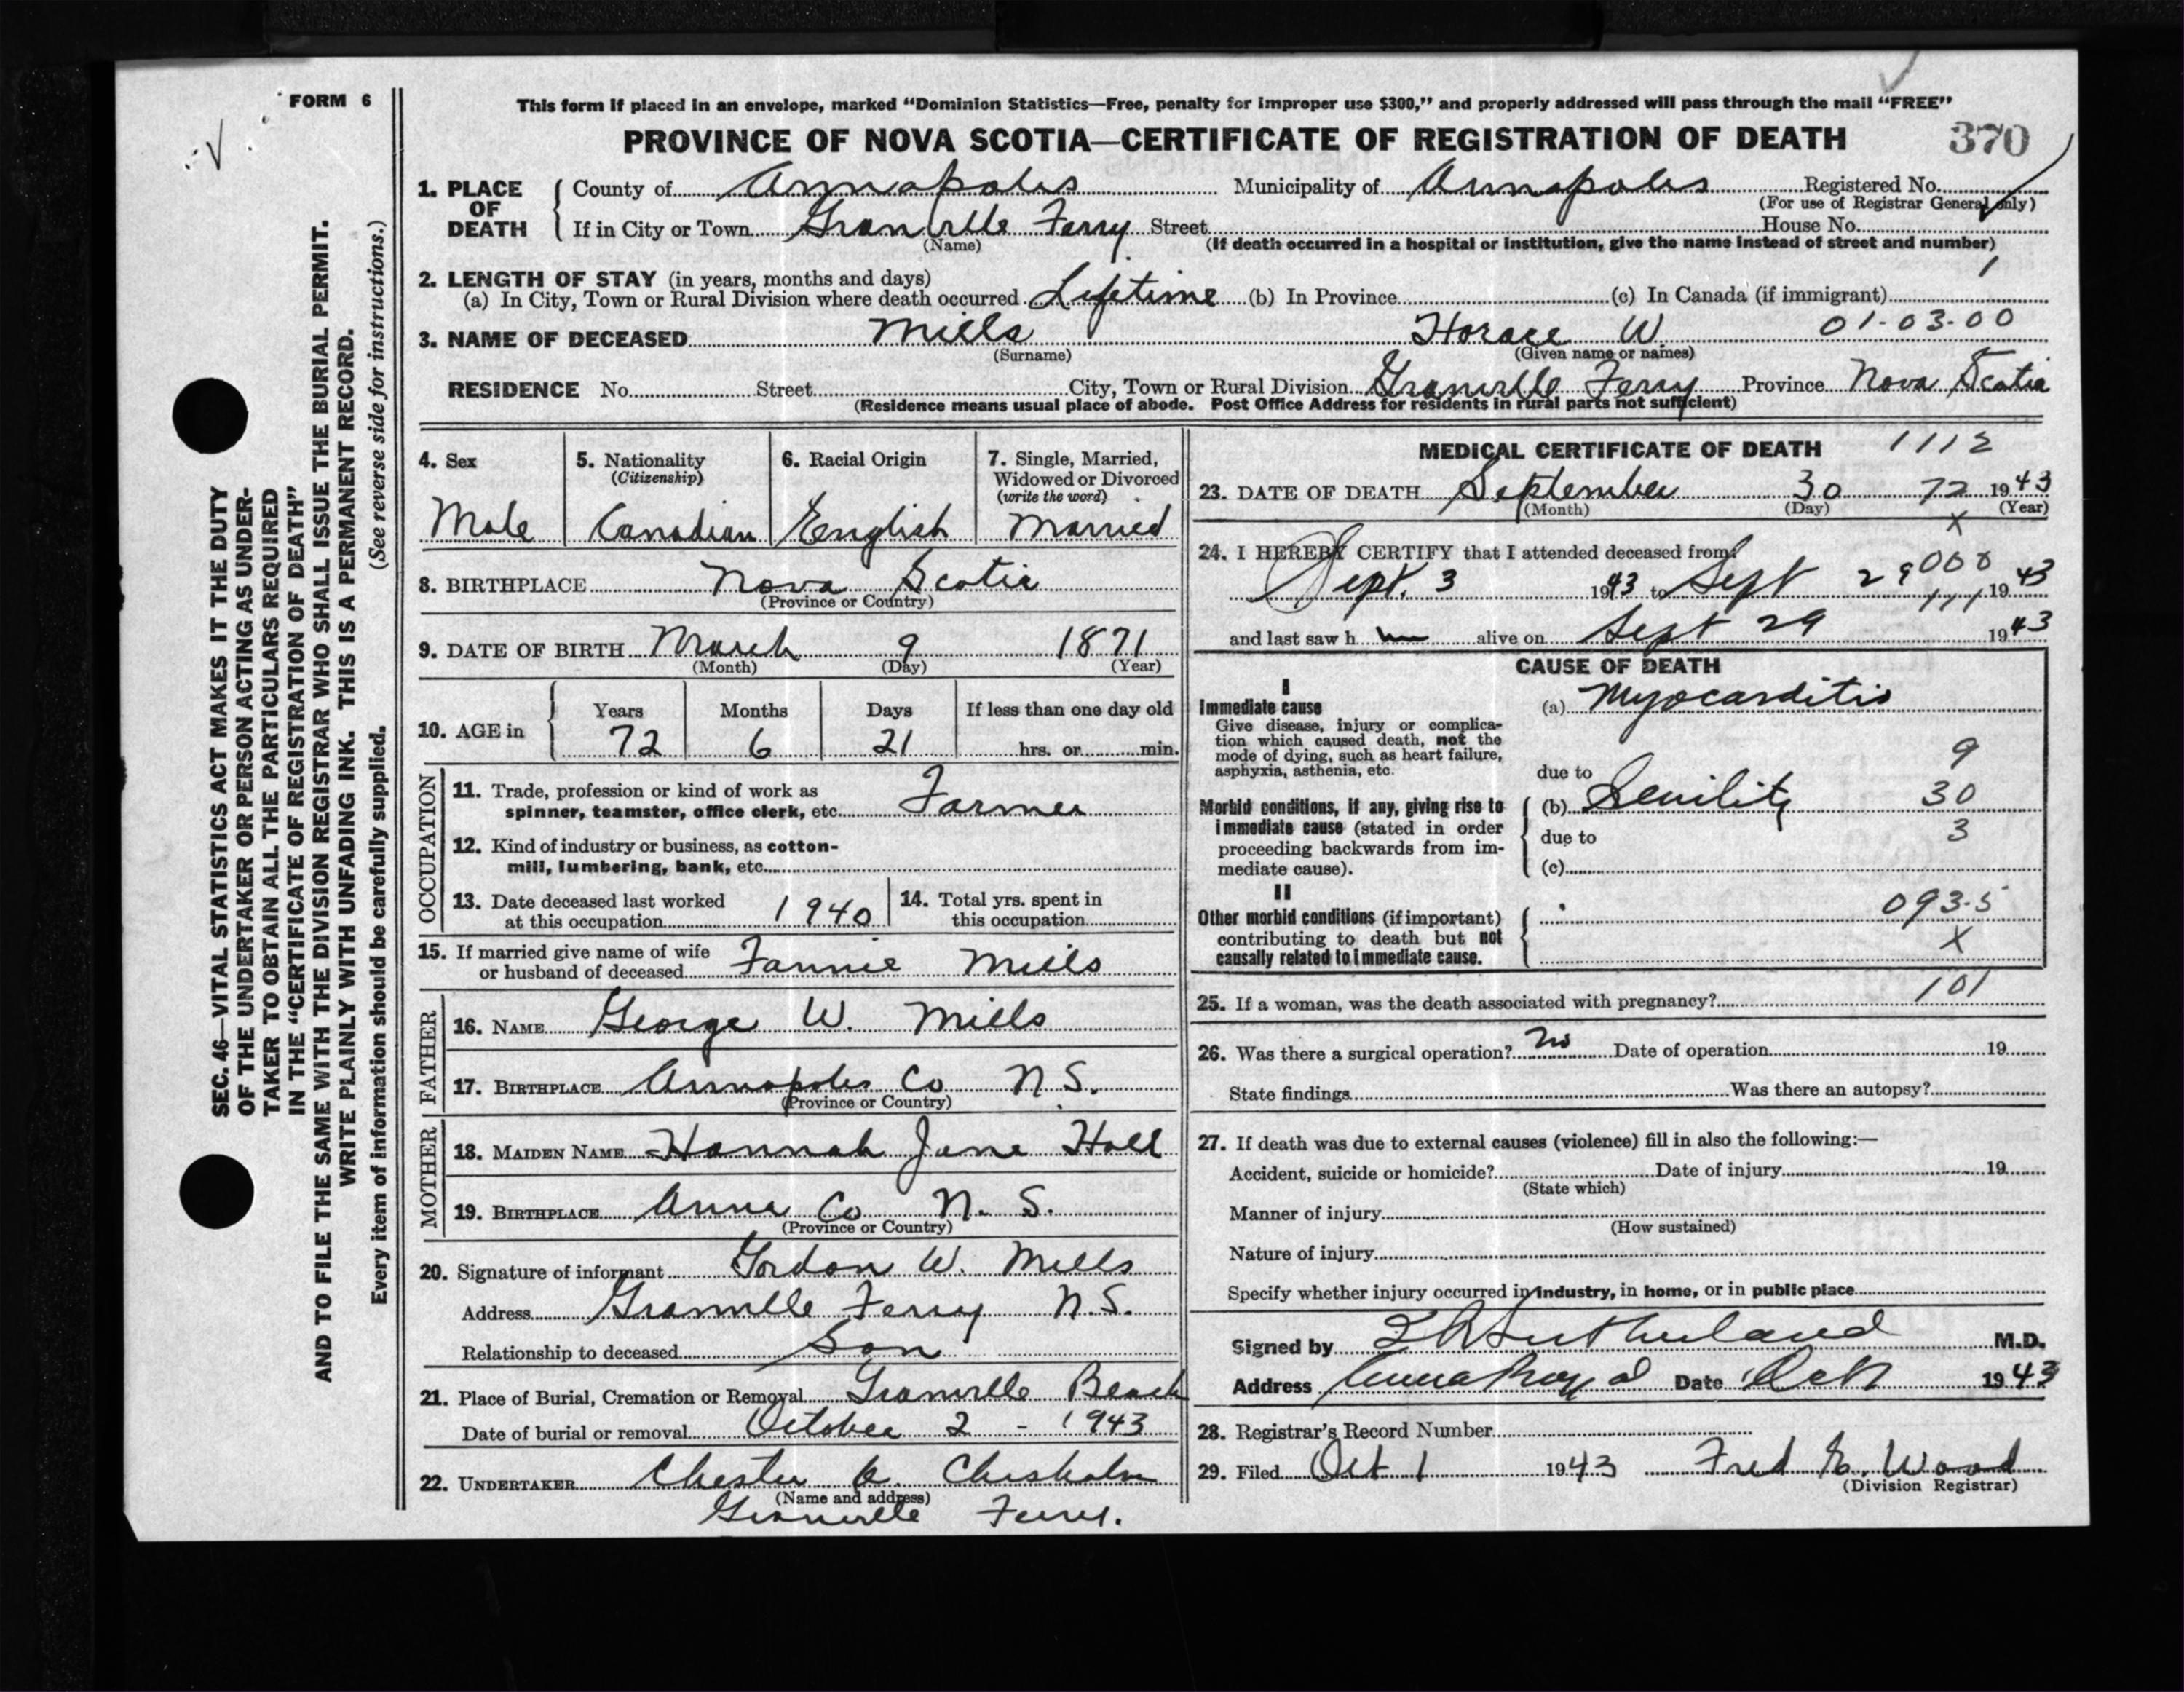 FORM 6
This form if placed in an envelope, marked "Dominion Statistics—Free, penalty for improper use $300," and properly addressed will pass through the mail "FREE"
PROVINCE OF NOVA SCOTIA—CERTIFICATE OF REGISTRATION OF DEATH 370
SEC. 46—VITAL STATISTICS ACT MAKES IT THE DUTY
OF THE UNDERTAKER OR PERSON ACTING AS UNDER-
TAKER TO OBTAIN ALL THE PARTICULARS REQUIRED
IN THE "CERTIFICATE OF REGISTRATION OF DEATH"
AND TO FILE THE SAME WITH THE DIVISION REGISTRAR WHO SHALL ISSUE THE BURIAL PERMIT.
WRITE PLAINLY WITH UNFADING INK. THIS IS A PERMANENT RECORD.
Every item of information should be carefully supplied. (See reverse side for instructions.)
1. PLACE OF DEATH County of Annapolis Municipality of Annapolis Registered No.
(For use of Registrar General only)
If in City or Town Granville Ferry Street House No.
(Name) (If death occurred in a hospital or institution, give the name instead of street and number)
2. LENGTH OF STAY (in years, months and days) 1
(a) In City, Town or Rural Division where death occurred Lifetime (b) In Province (c) In Canada (if immigrant)
3. NAME OF DECEASED Mills Horace W 01-03-00
(Surname) (Given name or names)
RESIDENCE No. Street City, Town or Rural Division Granville Ferry Province Nova Scotia
(Residence means usual place of abode. Post Office Address for residents in rural parts not sufficient)
4. Sex 5. Nationality 6. Racial Origin 7. Single, Married,
(Citizenship) Widowed or Divorced
(write the word)
Male Canadian English Married
8. BIRTHPLACE Nova Scotia
(Province or Country)
9. DATE OF BIRTH March 9 1871
(Month) (Day) (Year)
10. AGE in Years Months Days If less than one day old
72 6 21 hrs. or min.
OCCUPATION
11. Trade, profession or kind of work as
spinner, teamster, office clerk, etc. Farmer
12. Kind of industry or business, as cotton-
mill, lumbering, bank, etc.
13. Date deceased last worked 14. Total yrs. spent in
at this occupation 1940 this occupation
15. If married give name of wife
or husband of deceased Fannie Mills
FATHER
16. NAME George W. Mills
17. BIRTHPLACE Annapolis Co N.S.
(Province or Country)
MOTHER
18. MAIDEN NAME Hannah Jane Hall
19. BIRTHPLACE Anna Co N. S.
(Province or Country)
20. Signature of informant Gordon W. Mills
Address Granville Ferry N.S.
Relationship to deceased Son
21. Place of Burial, Cremation or Removal Granville Beach
Date of burial or removal October 2 - 1943
22. UNDERTAKER Chester A. Chisholm
(Name and address)
Granville Ferry.
MEDICAL CERTIFICATE OF DEATH 1112
23. DATE OF DEATH September 30 72 1943
(Month) (Day) (Year)
X
24. I HEREBY CERTIFY that I attended deceased from:
000
Sept. 3 1943 to Sept 29 1943
111
and last saw h im alive on Sept 29 1943
CAUSE OF DEATH
I
Immediate cause (a) Myocarditis
Give disease, injury or complica-
tion which caused death, not the
mode of dying, such as heart failure, 9
asphyxia, asthenia, etc. due to
Morbid conditions, if any, giving rise to (b) Senility 30
immediate cause (stated in order due to 3
proceeding backwards from im-
mediate cause). (c)
II
Other morbid conditions (if important) 093-5
contributing to death but not X
causally related to immediate cause.
25. If a woman, was the death associated with pregnancy? 101
26. Was there a surgical operation? No Date of operation 19
State findings Was there an autopsy?
27. If death was due to external causes (violence) fill in also the following:—
Accident, suicide or homicide? Date of injury 19
(State which)
Manner of injury
(How sustained)
Nature of injury
Specify whether injury occurred in industry, in home, or in public place
Signed by Sutherland M.D.
Address Anna Royal Date Oct 1943
28. Registrar's Record Number
29. Filed Oct 1 1943 Fred E. Wood
(Division Registrar)